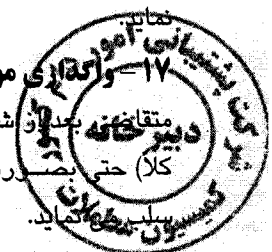 نماید.
۱۷ – واگذاری مو
متقاضی بعد از ش
کلاً) حتی بصور
سلب نماید.
شرکت پشتیبانی امور دام کشور
دبیرخانه
کمیسیون معاملات